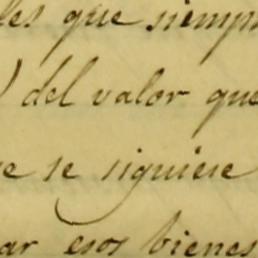 les que siemp
) del valor que
e se siguiese
ar esos bienes